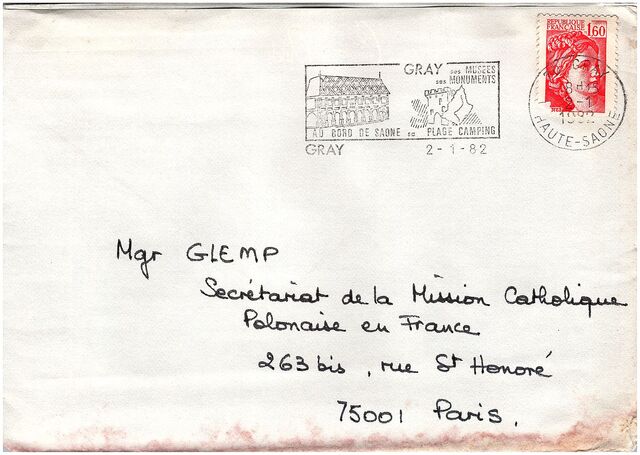 REPUBLIQUE FRANÇAISE 1,60
GRAY ses MUSEES
ses MONUMENTS
AU BORD DE SAONE sa PLAGE CAMPING
GRAY 2-1-82
1982
HAUTE-SAONE
Mgr GLEMP
Secrétariat de la Mission Catholique
Polonaise en France
263 bis, rue St Honoré
75001 Paris.